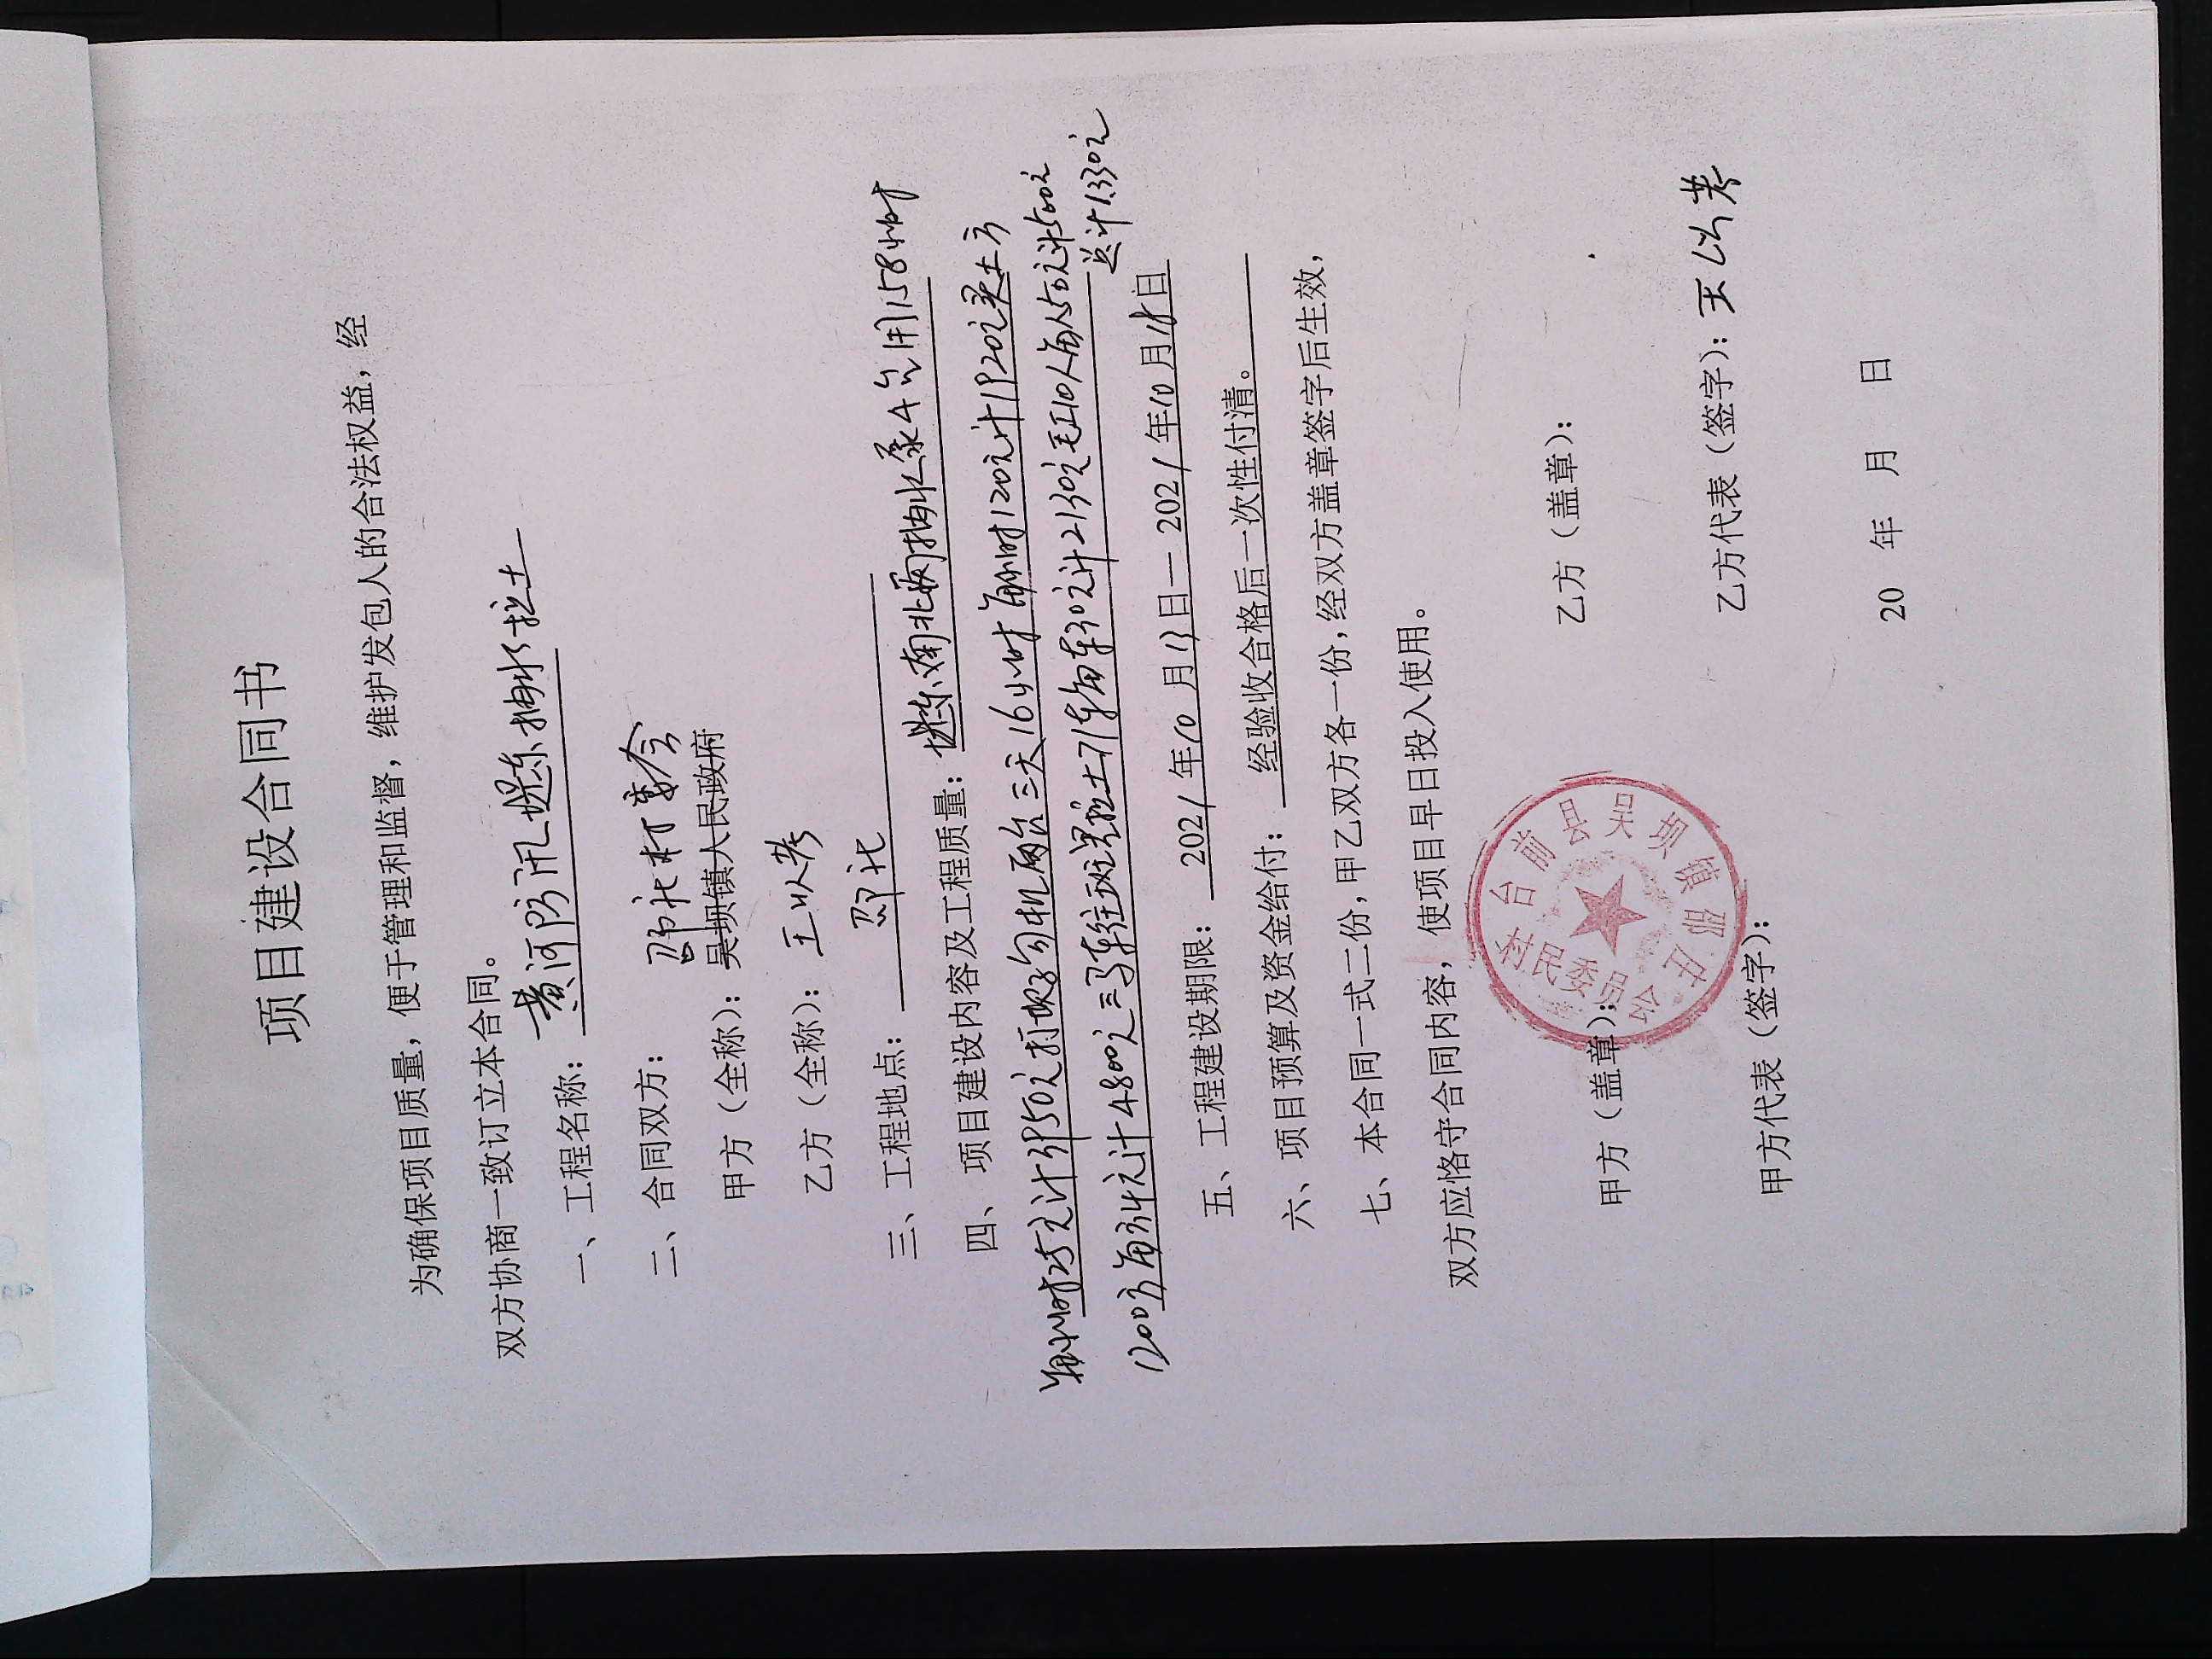 项目建设合同书
为确保项目质量，便于管理和监督，维护发包人的合法权益，经
双方协商一致订立本合同。
一、工程名称：黄河防汛堤东抽水拉土
二、合同双方：
邵庄村委会
甲方（全称）：吴坝镇人民政府
乙方（全称）：王以考
三、工程地点：邵庄
四、项目建设内容及工程质量：堤东南北两抽水泵4台用158小时
每小时25元计3950元 勾机两台三天16小时每小时120元计1920元买土方
1200方每方4元计4800元三马车往拉土71车每车30元计2130元工10人每人50元计500元
总计13300元
五、工程建设期限：2021年10月13日—2021年10月18日
六、项目预算及资金给付：经验收合格后一次性付清。
七、本合同一式二份，甲乙双方各一份，经双方盖章签字后生效，
双方应恪守合同内容，使项目早日投入使用。
甲方（盖章）： 乙方（盖章）：
台前县吴坝镇邵庄
村民委员会
甲方代表（签字）： 乙方代表（签字）：王以考
20 年 月 日